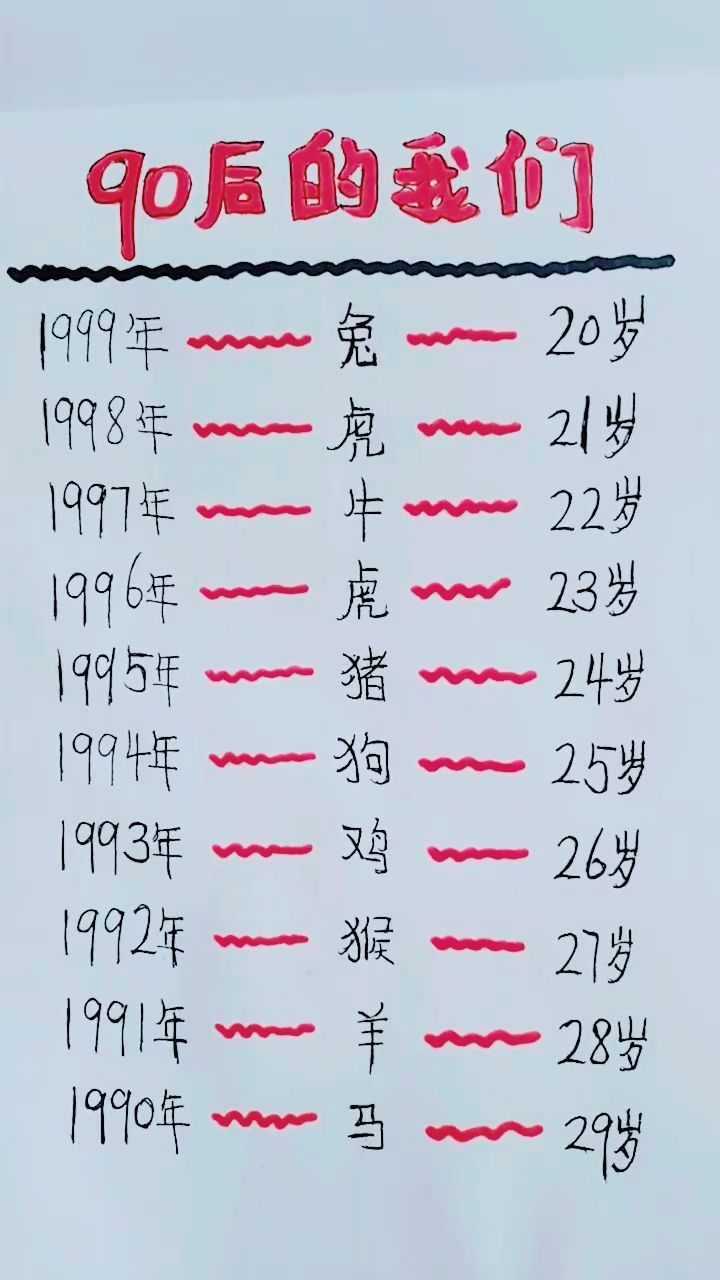 90后的我们
1999年 兔 20岁
1998年 虎 21岁
1997年 牛 22岁
1996年 虎 23岁
1995年 猪 24岁
1994年 狗 25岁
1993年 鸡 26岁
1992年 猴 27岁
1991年 羊 28岁
1990年 马 29岁